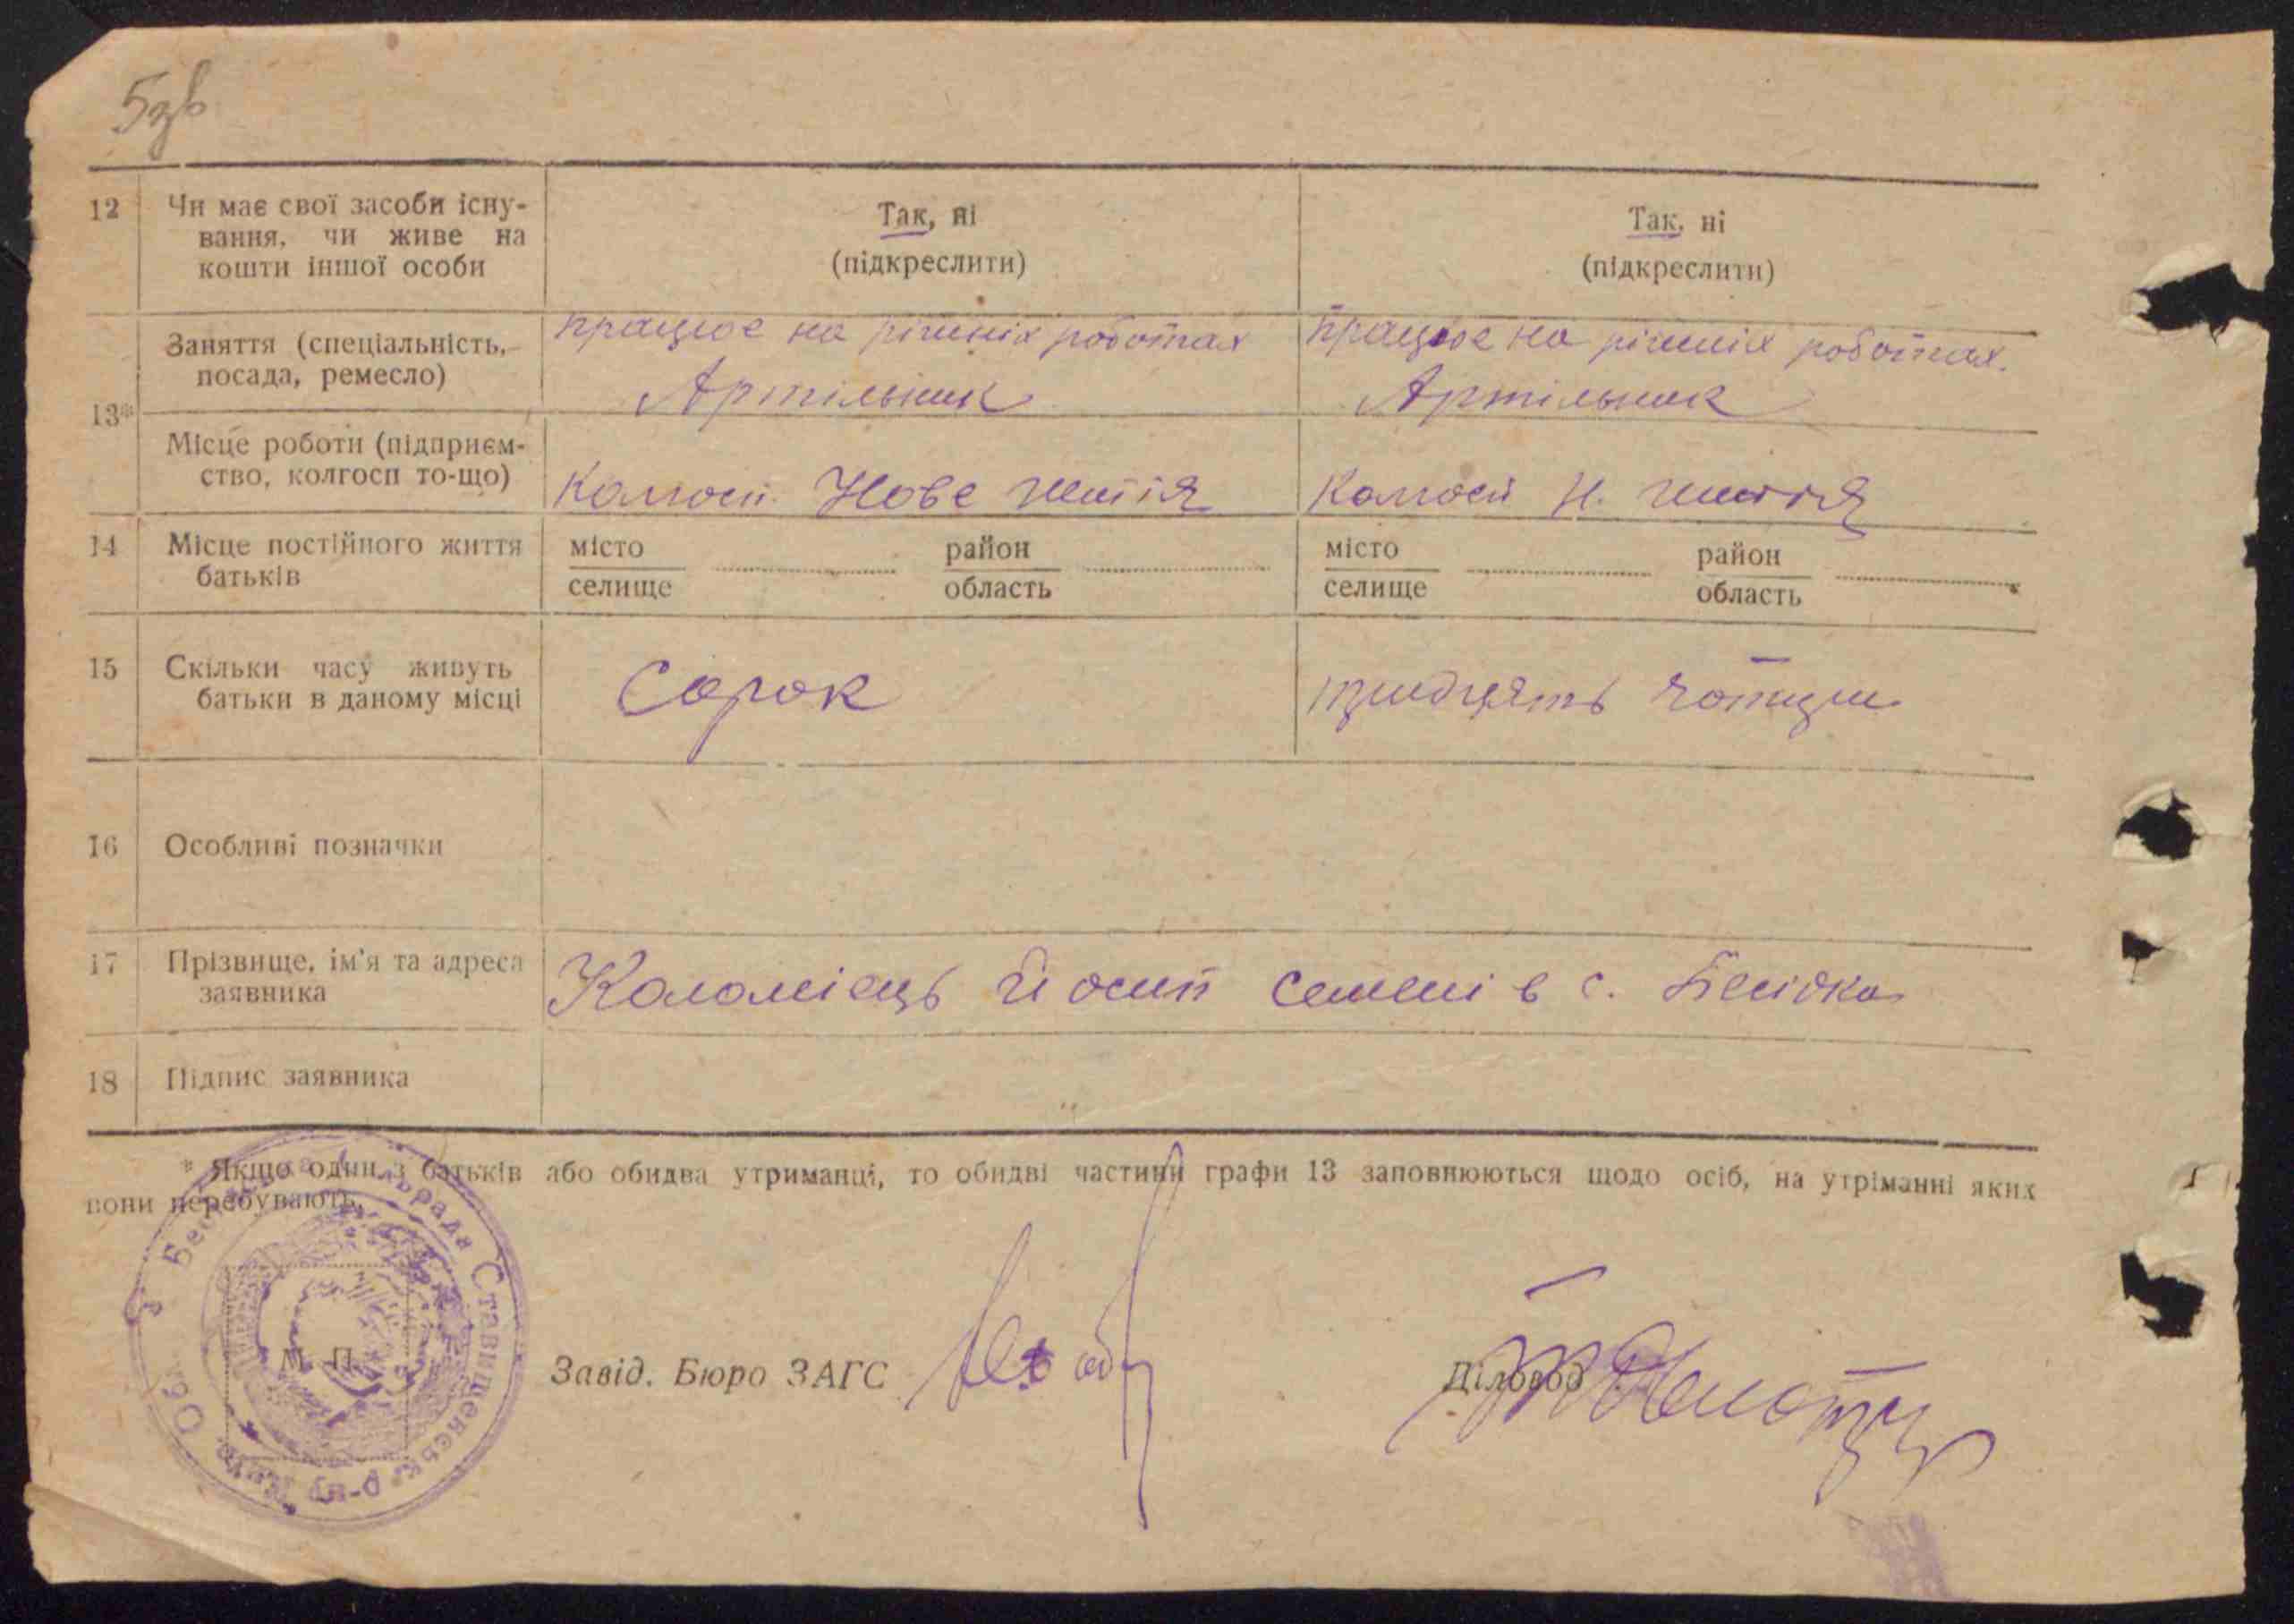 5зв
12 Чи має свої засоби існу-
вання, чи живе на
кошти іншої особи
Так, ні
(підкреслити)
Так, ні
(підкреслити)
13*
Заняття (спеціальність,
посада, ремесло)
працює на рішніх роботах
Артільник
працює на рішніх роботах.
Артільник
Місце роботи (підприєм-
ство, колгосп то-що)
Колгосп. Нове життя
Колгосп Н. життя
14 Місце постійного життя
батьків
місто район
селище область
місто район
селище область
15 Скільки часу живуть
батьки в даному місці
Сорок
тридцять чотири
16 Особливі позначки
17 Прізвище, ім'я та адреса
заявника
Коломієць Йосип Семенів с. Бесідка
18 Підпис заявника
* Якщо один з батьків або обидва утриманці, то обидві частини графи 13 заповнюються щодо осіб, на утріманні яких
вони перебувають.
М. П.
Завід. Бюро ЗАГС
Діловод